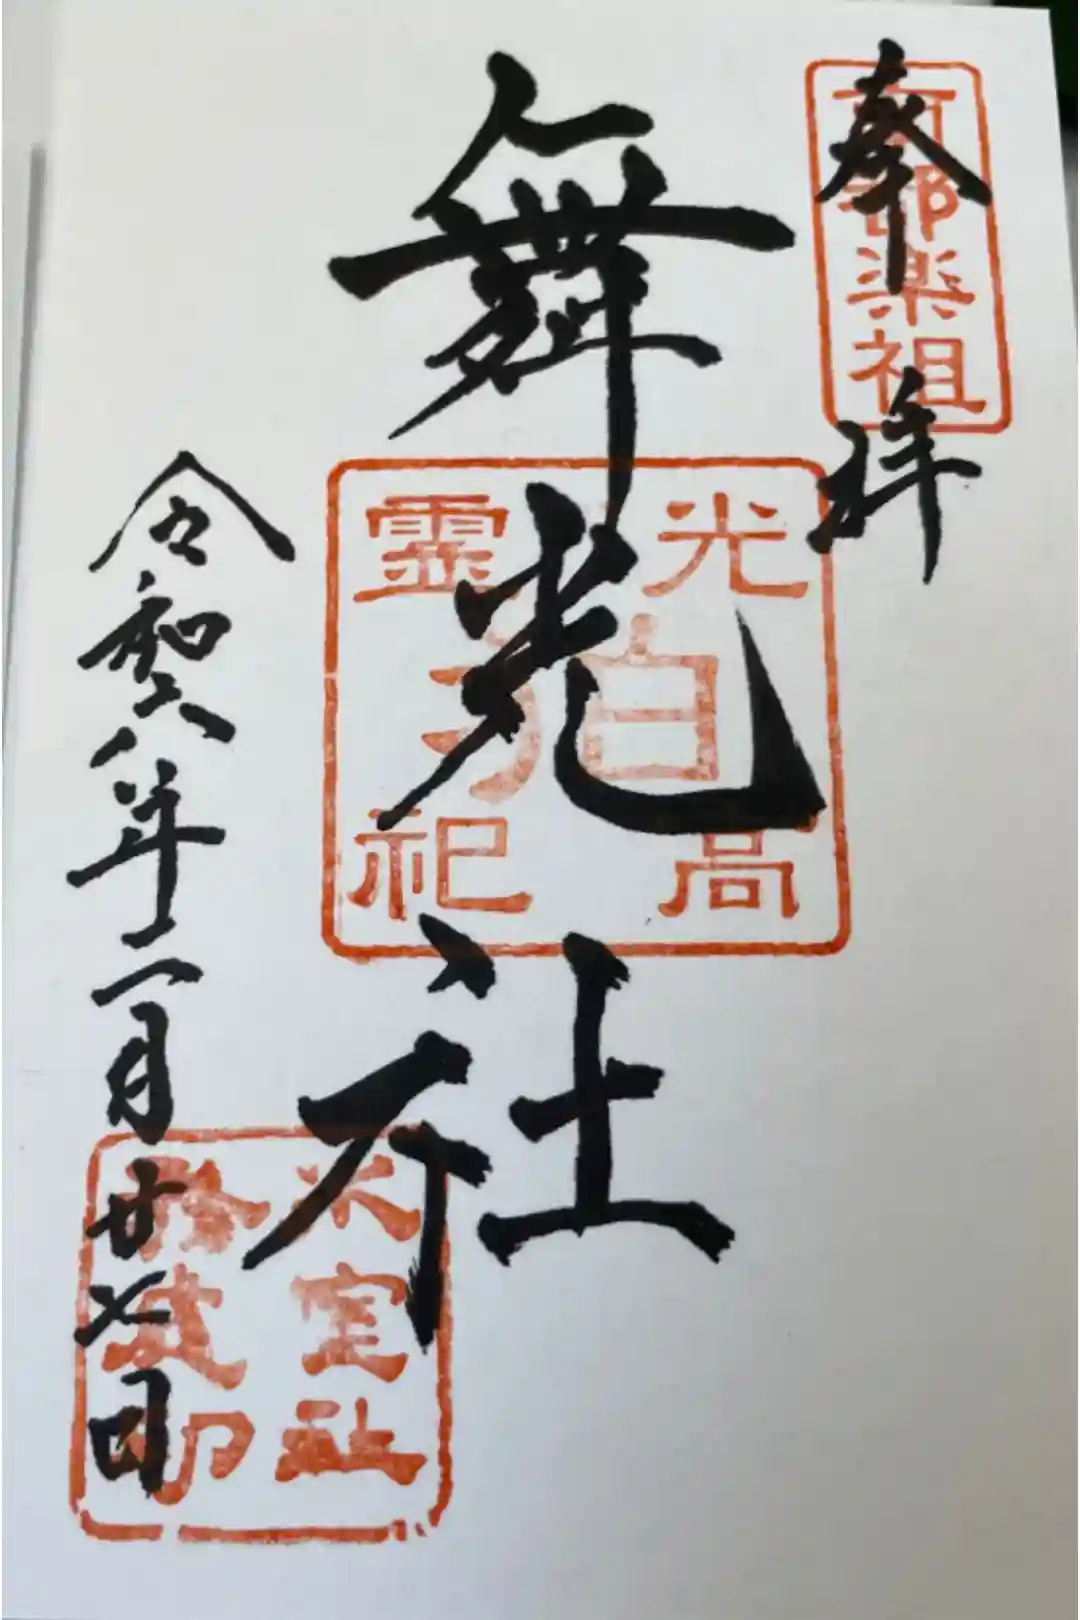 奉拝
南都楽祖
舞光社
光高
狛
靈祀
令和六年一月廿七日
氷室社
印